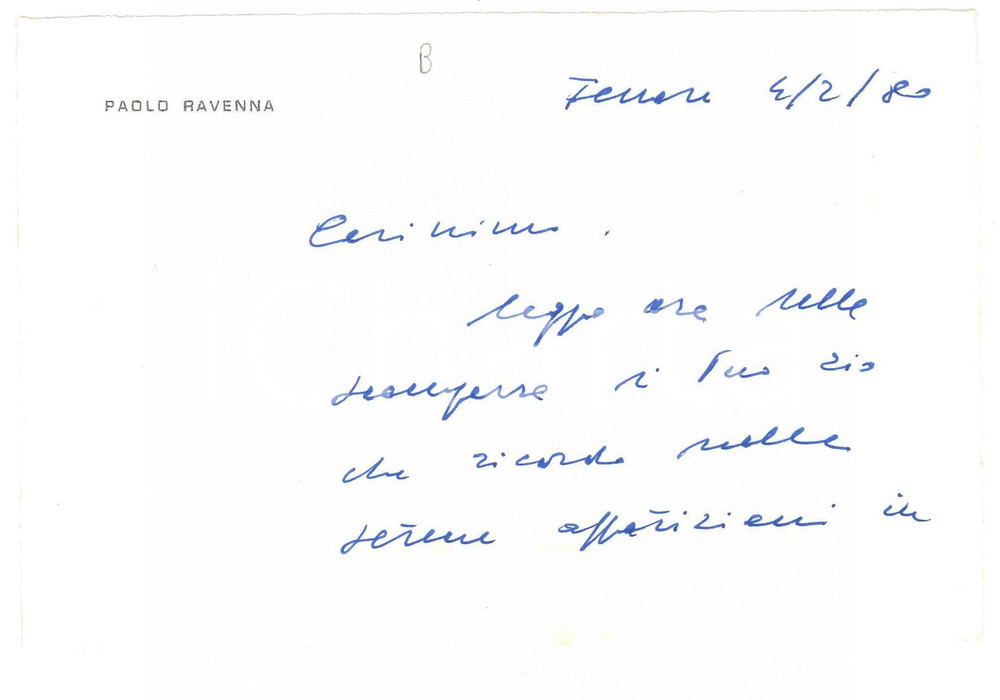 B
PAOLO RAVENNA
Ferrara 4/2/80
Carissimo,
leggo ora della
scomparsa di Tuo zio
che ricordo nelle
serene apparizioni in